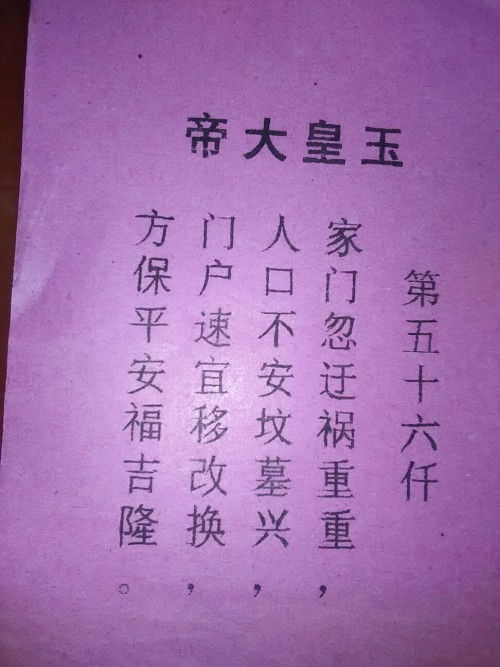 玉皇大帝
第五十六仟
家门忽迂祸重重，
人口不安坟墓兴，
门户速宜移改换，
方保平安福吉隆。